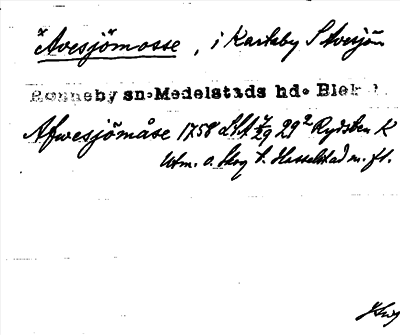 "Avesjömosse", i Karlsby S Aversjön
Ronneby sn. Medelstads hd. Blek.
Afwesjömåse 1758 LSA 29² Rydsten K
Utm. o. skog t. Hesselstad m. fl.